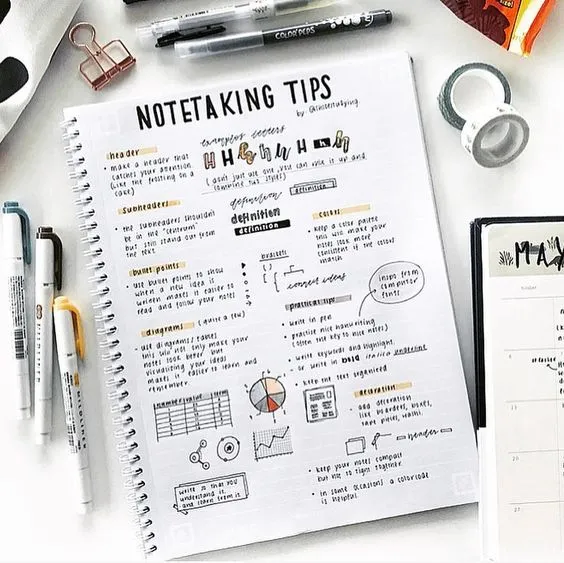 COLOR PEPS
NOTETAKING TIPS
header
• make a header that
catches your attention
(like the frosting on a
cake)
examples headers
H H H H H H
(don't just use one, you can mix it up and
combine the styles)
subheaders
• the subheaders shouldn't
be in the "centrum"
but still stand out from
the text.
definition
definition
definition
definition
bullet points
• use bullet points to show
when a new idea is
written makes it easier to
read and follow your notes
brackets
connect ideas
colors
• keep a color palette
this will make your
notes look more
consistent if the colors
match
diagrams (quite a few)
• use diagrams/tables
this will not only make your
notes look better but
visualizing your ideas
makes it easier to learn and
remember.
practical tips
• write in pen
• practice nice handwriting
(often the key to nice notes)
• write keywords and highlight,
or write in bold italics underline
• keep the text organized
inspo from
computer
fonts
decoration
• add decoration
like boarders, boxes,
tape pieces, washi.
header
• keep your notes compact
but not to tight together.
• in some occasions a colorcode
is helpful
write so that you
understand it
and learn from it
MAY
MILDLINER